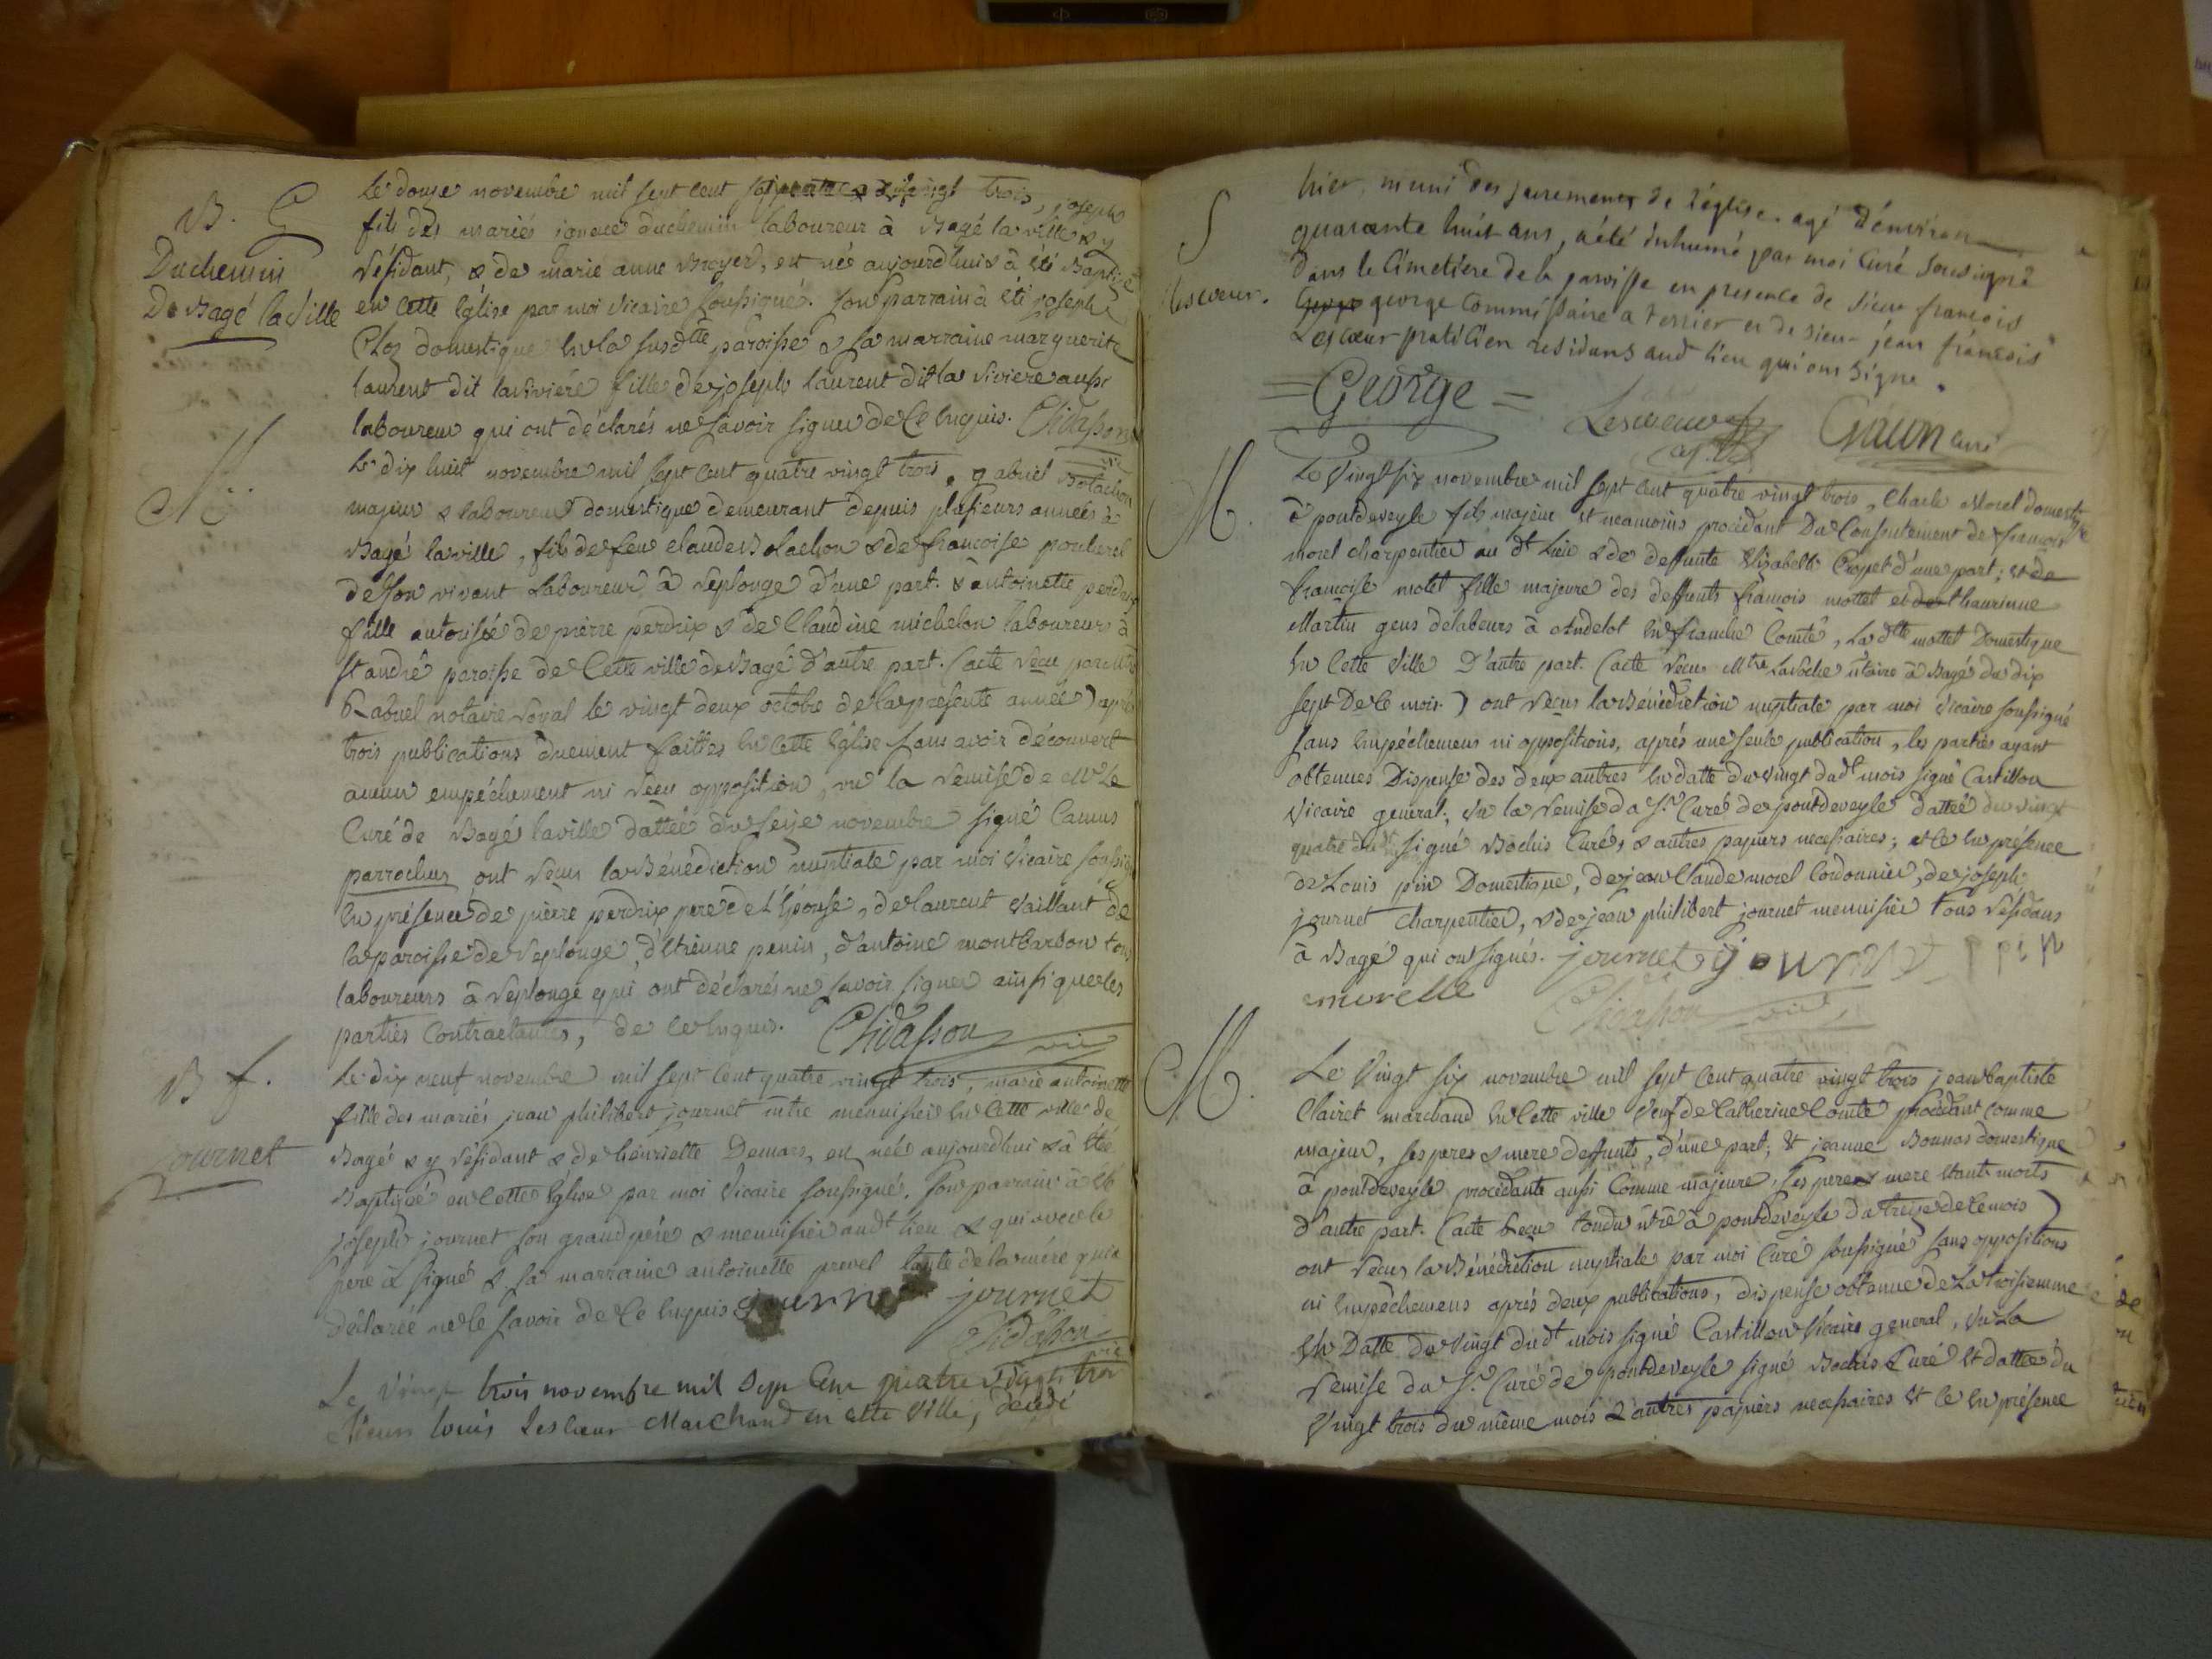 B. G
Duchemin
De Bagé la ville
Le douze novembre mil sept cent quatre vingt trois, joseph
fils des mariés ignace duchemin laboureur à Bagé la ville & y
résidant, & de marie anne Broyer, est né aujourdhui & à été Baptisé
en cette église par moi vicaire soussigné. son parrain à été joseph
Cloz domestique en la susdtte paroisse & sa marraine marguerite
laurent dit lariviére fille de joseph laurent dit la riviere aussi
laboureur qui ont déclarés ne savoir signer de ce enquis. Chidasson
M.
le dix huit novembre mil sept cent quatre vingt trois, gabriel Bolachon
majeur & laboureur domestique demeurant depuis plusieurs années à
Bagé laville, fils de feu claude Bolachon & de francoise poncherel
de son vivant laboureur à replonge d'une part. & antoinette perdrix
fille autorisée de pierre perdrix & de Claudine michelon laboureurs à
st andré paroisse de Cette ville de Bagé d'autre part. (acte reçu
notaire royal le vingt deux octobre de la présente année) après
trois publications duement faittes en cette église sans avoir découvert
aucun empéchement ni reçu opposition, vu la remise de Mr Le
Curé de Bagé laville dattée du seize novembre signé Camus
parrochus ont reçus la Bénédiction nuptiale par moi vicaire soussigné
en présence de pierre perdrix pere de L'épouse, de laurent vaillant de
la paroisse de replonge, d'étienne penin, d'antoine montbarbon tous
laboureurs à replonge qui ont déclarés ne savoir signer ainsi que les
parties Contractantes, de ce enquis. Chidasson vic
B f.
journet
le dix neuf novembre mil sept cent quatre vingt trois, marie antoinette
fille des mariés jean philibert journet mtre menuisier en cette ville de
Bagé & y résidant & de henriette Demars, est née aujourdhui & à été
Baptisée en cette église par moi vicaire soussigné. son parrain à été
joseph journet son grand pére & menuisier audt lieu & qui avec le
pere à signé & sa marraine antoinette prevel tante de la mére qui a
déclarée ne le savoir de ce enquis journet journet
Chidasson
vic
Le vingt trois novembre mil sept Cent quatre vingt trois
sieur louis Lescœur Marchand en cette ville, décédé
S
Lescœur.
hier, muni des sacrements de l'église. agé d'environ
quarante huit ans, a été inhumé par moi Curé soussigné
dans le Cimetiere de la paroisse en presence de sieur francois
george Commissaire a terrier et de sieur jean françois
Lescœur praticien residans audt lieu qui ont signé.
=George= Lescœur Gacon curé
M.
Le Vingt six novembre mil sept cent quatre vingt trois, Charle Morel domestique
à pontdeveyle fils majeur et neamoins procédant Du Consentement de francois
morel charpentier au dt Lieu & de deffunte Elizabeth Cropet d'une part; et de
francoise motet fille majeure des deffunts francois mottet et de thaurinne
Martin gens delabeurs à Andelot en franche Comté, Ladtte mottet Domestique
en Cette ville D'autre part. (acte reçu Mtre Laroche ntaire à Bagé du dix
sept De ce mois) ont reçus la Bénédiction nuptiale par moi vicaire soussigné
sans empéchemens ni oppositions, aprés une seule publication, les parties ayant
obtenues Dispense des deux autres en datte du vingt dudt mois signé Castillon
vicaire general; vu la remise du Sr. Curé de pontdeveyle dattée du vingt
quatre dudt signé Bochis Curé, & autres papiers necessaires; et ce en présence
de Louis pin Domestique, de jean Claude morel Cordonnier, de joseph
journet charpentier, & de jean philibert journet menuisier tous résidans
à Bagé qui ont signés. journet journet pin
morelle
Chidasson vic
M.
Le vingt six novembre mil sept cent quatre vingt trois jean baptiste
Clairet marchand en Cette ville veuf de Catherine Comte procédant comme
majeur, ses peres & mere deffunts, d'une part; & jeanne Bonnas domestique
à pontdeveyle procédante aussi Comme majeure, ses pere & mere étant morts
d'autre part. (acte reçu tondu ntre à pontdeveyle du treize de ce mois)
ont reçus la Bénédiction nuptiale par moi Curé soussigné sans oppositions
ni empéchemens aprés deux publications, dispense obtenue de La troisiemme
en Datte du vingt dudt mois signé Castillon vicaire general, vu La
remise du Sr. Curé de pontdeveyle signé Bochis Curé et dattée du
vingt trois du même mois & autres papiers necessaires et ce en présence